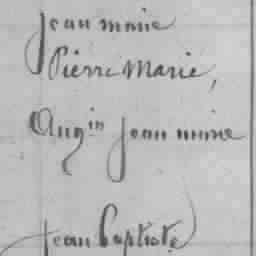 Jean marie
Pierre Marie,
Aug^in Jean marie
Jean Baptiste